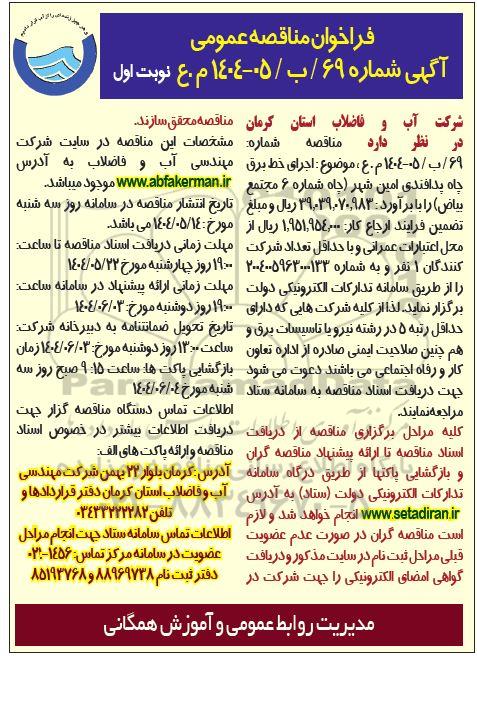 فراخوان مناقصه عمومی
آگهی شماره ۶۹ / ب / ۰۵-۱۴۰۴ م .ع نوبت اول
شرکت آب و فاضلاب استان کرمان
در نظر دارد مناقصه شماره:
۶۹ / ب / ۰۵-۱۴۰۴ م . ع ، موضوع : اجرای خط برق
چاه پدافندی امین شهر (چاه شماره ۶ مجتمع
بیاض) را با برآورد : ۳۹،۰۳۹،۰۷۰،۹۸۳ ریال و مبلغ
تضمین فرایند ارجاع کار: ۱،۹۵۱،۹۵۴،۰۰۰ ریال از
محل اعتبارات عمرانی و با حداقل تعداد شرکت
کنندگان ۱ نفر و به شماره ۲۰۰۴۰۰۵۹۶۳۰۰۰۱۳۳
را از طریق سامانه تدارکات الکترونیکی دولت
برگزار نماید. لذا از کلیه شرکت هایی که دارای
حداقل رتبه ۵ در رشته نیرو یا تاسیسات برق و
هم چنین صلاحیت ایمنی صادره از اداره تعاون
کار و رفاه اجتماعی می باشند دعوت می شود
جهت دریافت اسناد مناقصه به سامانه ستاد
مراجعه نمایند.
کلیه مراحل برگزاری مناقصه از دریافت
اسناد مناقصه تا ارائه پیشنهاد مناقصه گران
و بازگشایی پاکتها از طریق درگاه سامانه
تدارکات الکترونیکی دولت (ستاد) به آدرس
www.setadiran.ir انجام خواهد شد و لازم
است مناقصه گران در صورت عدم عضویت
قبلی مراحل ثبت نام در سایت مذکور و دریافت
گواهی امضای الکترونیکی را جهت شرکت در
مناقصه محقق سازند.
مشخصات این مناقصه در سایت شرکت
مهندسی آب و فاضلاب به آدرس
www.abfakerman.ir موجود میباشد.
تاریخ انتشار مناقصه در سامانه روز سه شنبه
مورخ : ۱۴۰۴/۰۵/۱۴ می باشد.
مهلت زمانی دریافت اسناد مناقصه تا ساعت:
۱۹:۰۰ روز چهارشنبه مورخ ۱۴۰۴/۰۵/۲۲
مهلت زمانی ارائه پیشنهاد در سامانه ساعت:
۱۹:۰۰ روز دوشنبه مورخ : ۱۴۰۴/۰۶/۰۳
تاریخ تحویل ضمانتنامه به دبیرخانه شرکت:
ساعت ۱۳:۰۰ روز دوشنبه مورخ: ۱۴۰۴/۰۶/۰۳ زمان
بازگشایی پاکت ها: ساعت ۹:۱۵ صبح روز سه
شنبه مورخ ۱۴۰۴/۰۶/۰۴
اطلاعات تماس دستگاه مناقصه گزار جهت
دریافت اطلاعات بیشتر در خصوص اسناد
مناقصه و ارائه پاکت های الف:
آدرس : کرمان بلوار ۲۲ بهمن شرکت مهندسی
آب و فاضلاب استان کرمان دفتر قراردادها و
تلفن ۰۳۴۳۳۲۲۲۲۸۲
اطلاعات تماس سامانه ستاد جهت انجام مراحل
عضویت در سامانه مرکز تماس : ۱۴۵۶-۰۲۱
دفتر ثبت نام ۸۸۹۶۹۷۳۸ و ۸۵۱۹۳۷۶۸
مدیریت روابط عمومی و آموزش همگانی